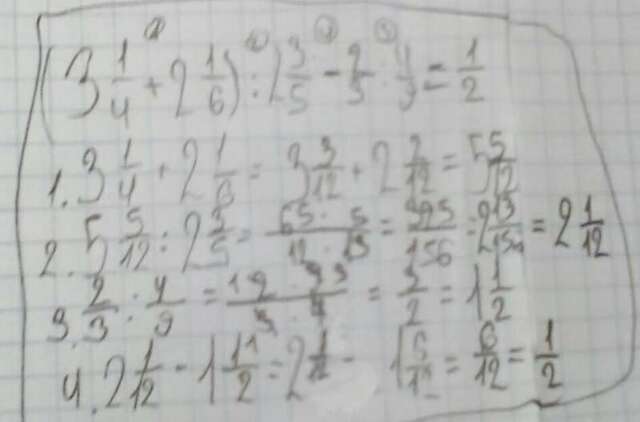 (3 1/4 + 2 1/6) : 2 3/5 - 2/3 : 4/9 = 1/2
1. 3 1/4 + 2 1/6 = 3 3/12 + 2 2/12 = 5 5/12
2. 5 5/12 : 2 3/5 = 65 · 5/12 · 13 = 325/156 = 2 13/156 = 2 1/12
3. 2/3 : 4/9 = = 3/2 = 1 1/2
4. 2 1/12 - 1 1/2 = 2 1/12 - 1 6/12 = 6/12 = 1/2